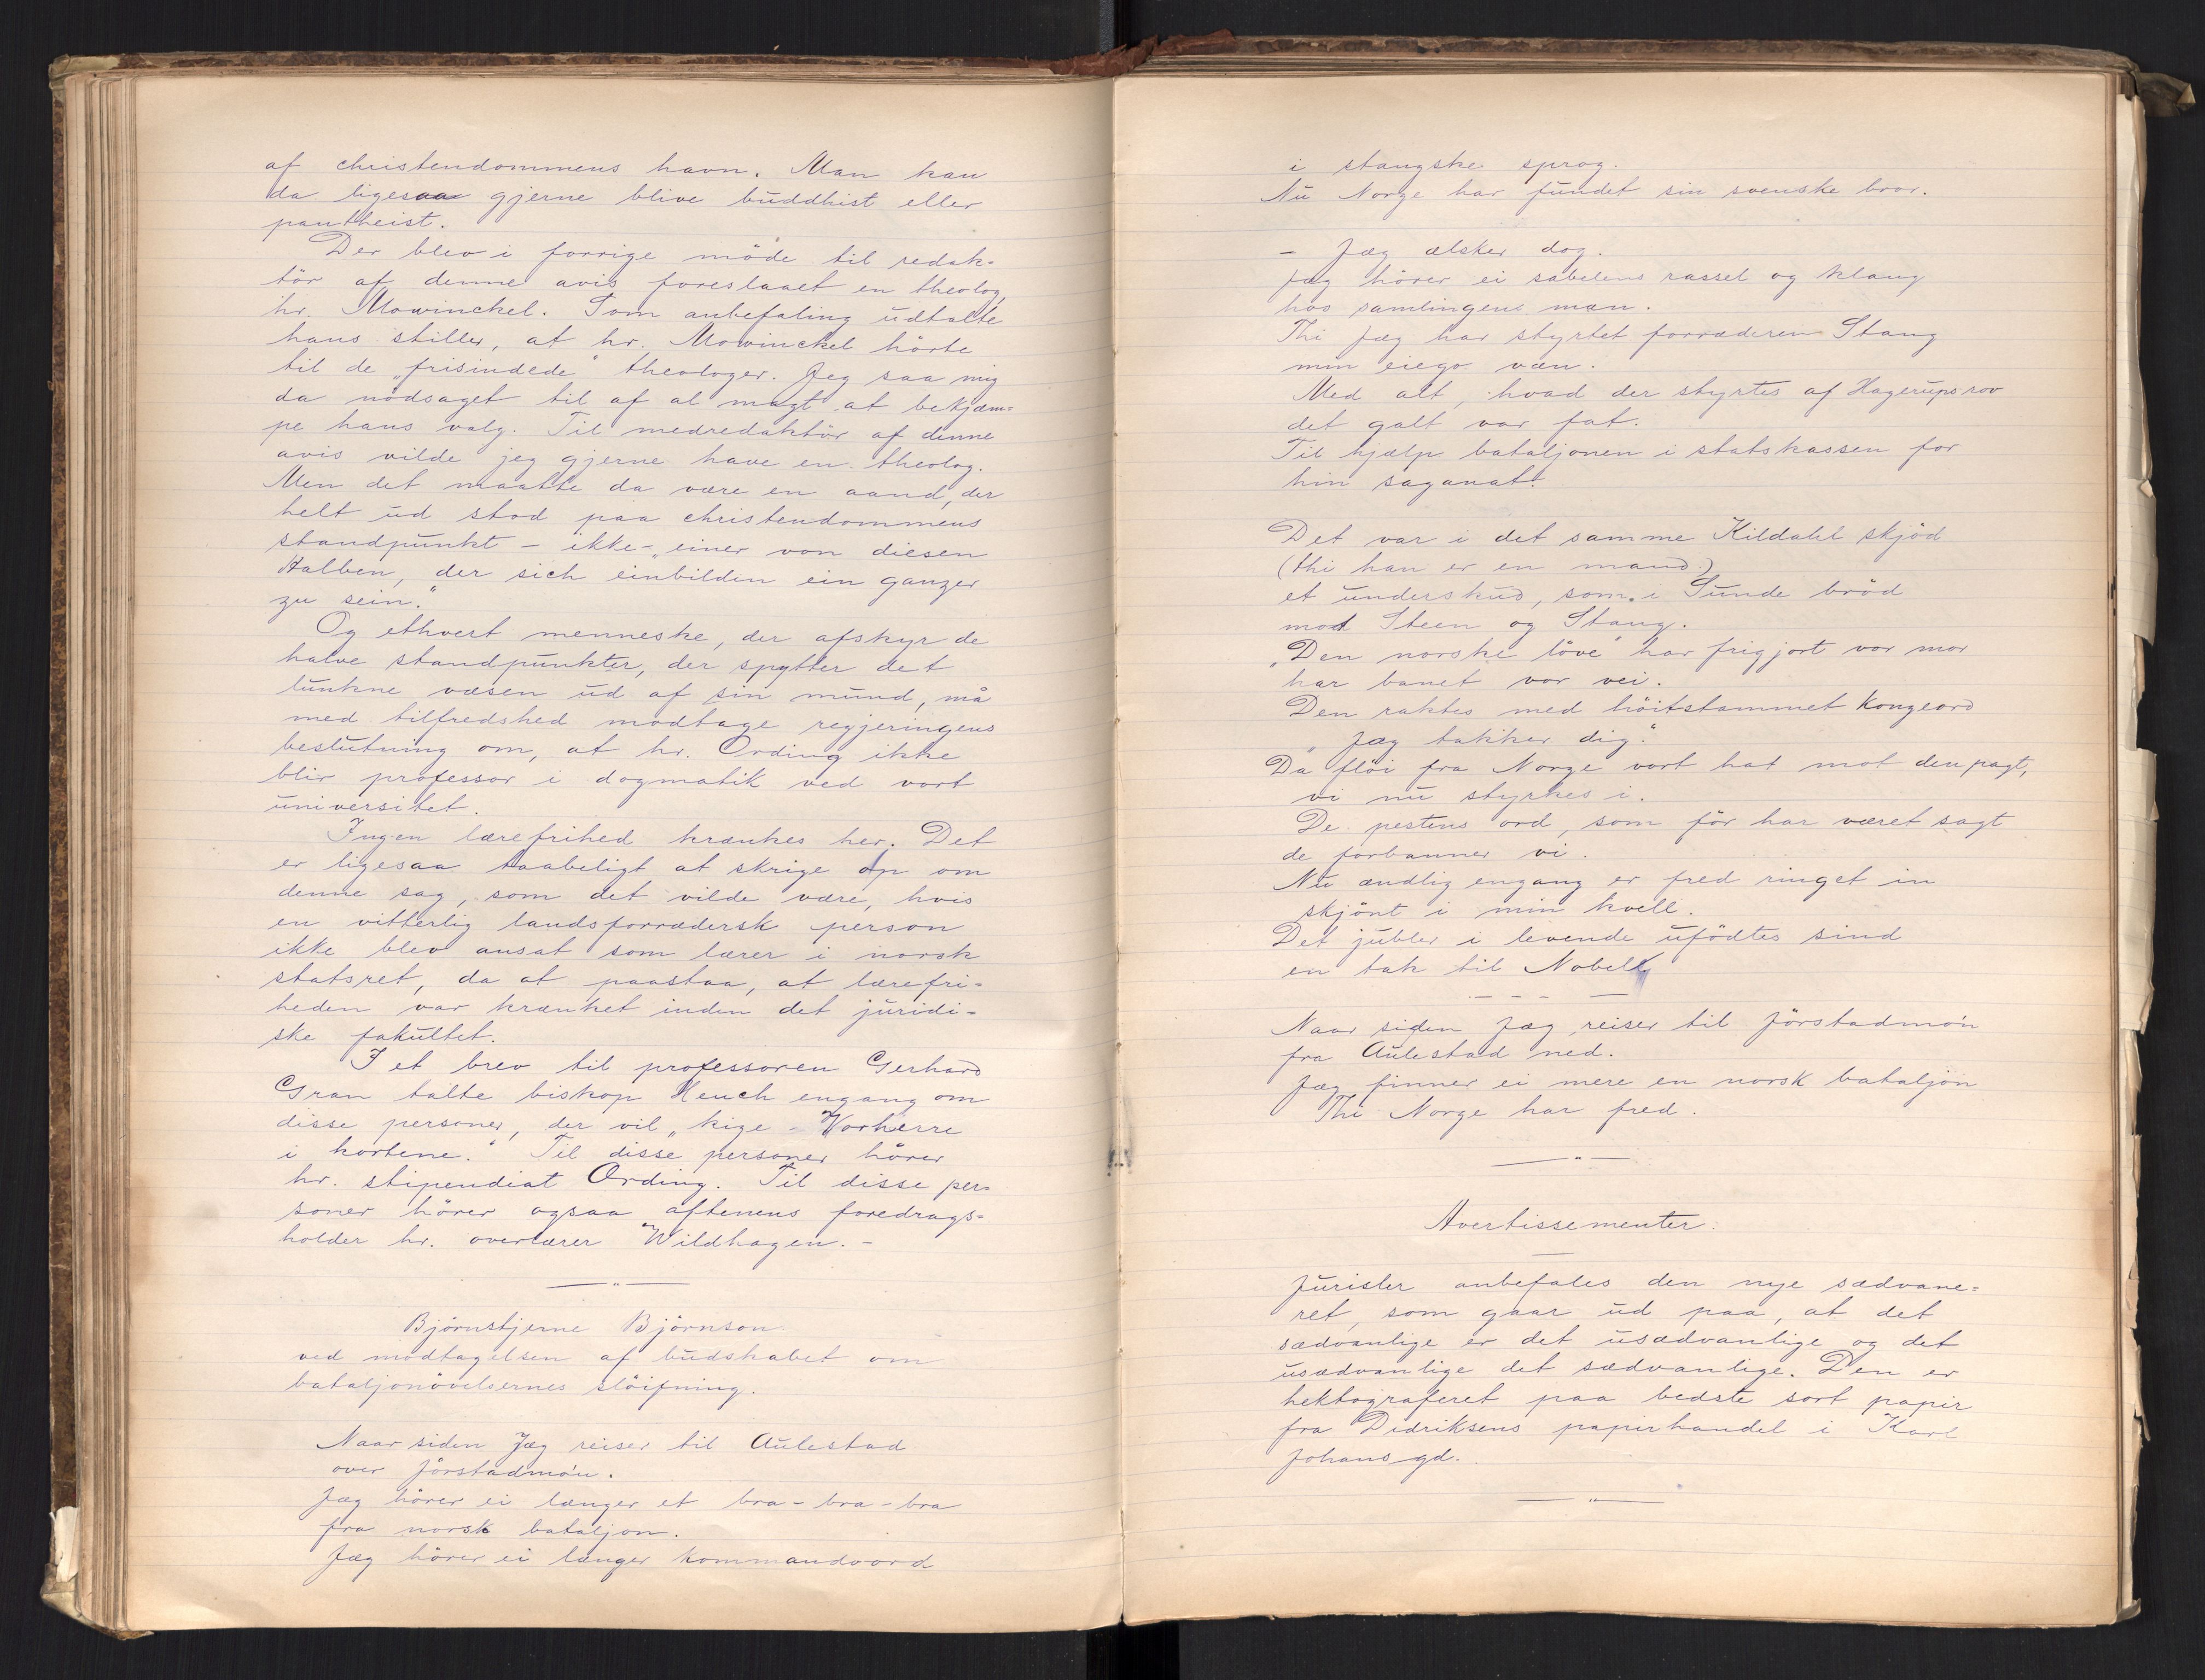 af christendommens havn. Man kan
da ligesaa gjerne blive buddhist eller
pantheist.
Der blev i forrige møde til redak-
tör af denne avis foreslaaet en theolog,
hr. Mowinckel. Som anbefaling udtalte
hans stiller, at hr. Mowinckel hörte
til de „frisindede" theologer. Jeg saa mig
da nödsaget til af al magt at bekjæm=
pe hans valg. Til medredaktör af denne
avis vilde jeg gjerne have en theolog.
Men det maatte da være en aand, der
helt ud stod paa christendommens
standpunkt – ikke – „einer von diesen
Halben, der sich einbilden ein ganzer
zu sein."
Og ethvert menneske, der afskyr de
halve standpunkter, der spytter det
lunkne væsen ud af sin mund, må
med tilfredshed modtage regjeringens
beslutning om, at hr. Ording ikke
blir professor i dogmatik ved vort
universitet.
Ingen lærefrihed krænkes her. Det
er ligesaa taabeligt at skrige op om
denne sag, som det vilde være, hvis
en vitterlig landsforrædersk person
ikke blev ansat som lærer i norsk
statsret, da at paastaa, at lærefri=
heden var krænket inden det juridi=
ske fakultet.
I et brev til professoren Gerhard
Gran talte biskop Heuch engang om
disse personer, der vil „kige Vorherre
i kortene." Til disse personer hörer
hr. stipendiat Ording. Til disse per=
soner hörer ogsaa aftenens foredrags=
holder hr. overlærer Wildhagen. –
Björnstjerne Björnson
ved modtagelsen af budskabet om
bataljonövelsernes slöifning.
Naar siden Jæg reiser til Aulestad
over Jörstadmo'n.
Jæg hörer ei længer et bra – bra – bra
fra norsk bataljon.
Jæg hörer ei længer kommandoord
i stangske sprog.
Nu Norge har fundet sin svenske bror.
– Jæg ælsker dog.
Jæg hörer ei sabelens rassel og klang
hos samlingens man.
Thi Jæg har styrtet forræderen Stang
min eiego væn.
Med alt, hvad der styrtes af Hagerups rov
det galt var fat.
Til hjælp bataljonen i statskassen for
hin saganat!
Det var i det samme Kildahl skjöd
(thi han er en mand.)
et underskud, som i Sunde bröd
mot Steen og Stang.
„Den norske löve" har frigjort vor mor
har banet vor vei.
Den raktes med höitstammet Kongeord
„Jæg takker dig."
Da flöi fra Norge vort hat mot den pagt,
vi nu styrkes i.
De pestens ord, som för har været sagt
de forbanner vi.
Nu ændlig engang er fred ringet in
skjönt i min kvell.
Det jubler i levende ufödtes sind
en tak til Nobell
Naar siden Jæg reiser til Jörstadmo'n
fra Aulestad ned.
Jæg finner ei mere en norsk bataljon
Thi Norge har fred.
Avertissementer.
Jurister anbefales den nye sædvane=
ret, som gaar ud paa, at det
sædvanlige er det usædvanlige og det
usædvanlige det sædvanlige. Den er
hektograferet paa bedste sort papir
fra Didriksens papirhandel i Karl
Johans gd.